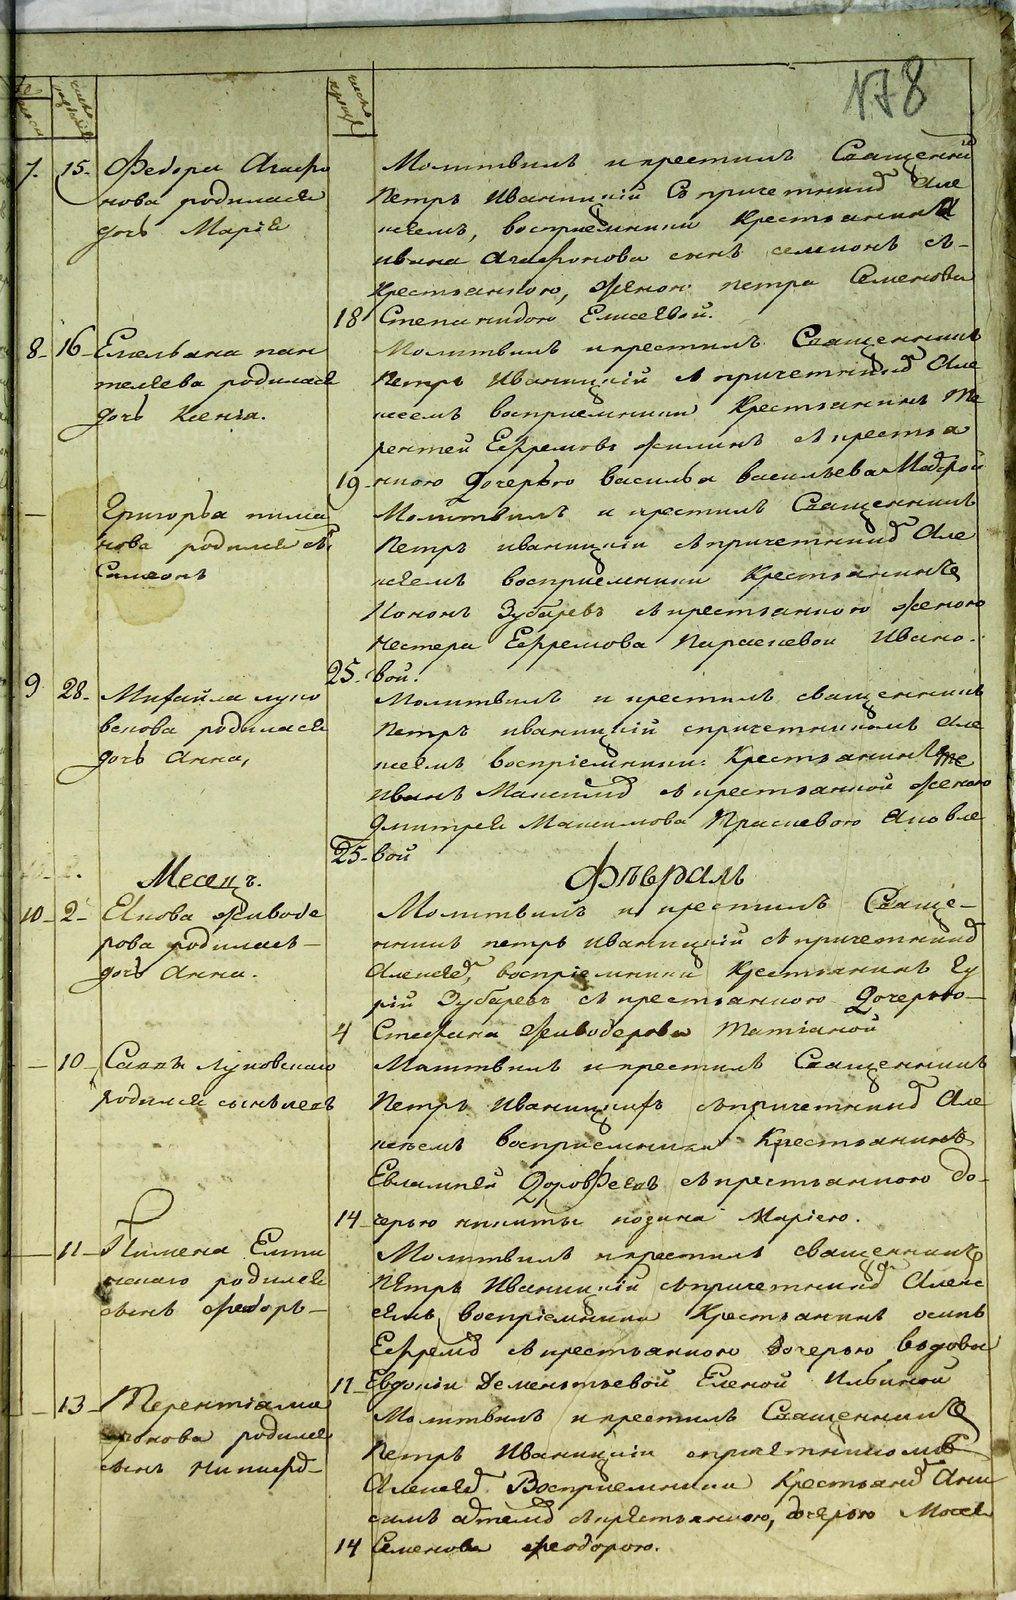 178
7. 15. Федора Агафо
нова родилася
дочь Марія
Молитвилъ и крестилъ Священни
Петръ Иваницкій Съ причетник Але
ксеемъ, восприемники Крестьянина
ивана Агафонова сынъ семионъ съ
крестьянкою, женою петра Семенова
18 Степанидою Елисѣвой.
8 16 Емельяна пан
телеева родилася
дочь Ксенія.
Молитвилъ и крестилъ Священникъ
Петръ Иваницкій съ причетник Але
ксеемъ восприемники Крестьянинъ Те
рентей Ефремовъ съ крестья
19 нкою Дочерью Василья Васильева
Григорья
родился сы
Симеонъ
Молитвилъ и крестилъ Священникъ
Петръ иваницкіи съ причетник Але
ксеемъ восприемники Крестьянинъ
Кононъ Зубаревъ съ крестьянкою женою
Нестера Ефремова Параскевои Ивано
25 вой.
9 28 Михаила луко
вскова родилася
дочь Анна,
Молитвилъ и крестилъ священникъ
Петръ иваницкій спричетникомъ Але
ксеемъ воспріемники: Крестьянинъ
Иванъ Максим съ крестьянкой женою
Дмитрея Максимова Праскевою Яковле
25 вой
Месецъ. Фѣвраль
10 2 Якова Живоде
рова родилась
дочь Анна.
Молитвилъ и крестилъ Свяще
нникъ петръ иваницкій съ причетник
Алексеем, воспріемники Крестьянинъ Гу
рій Зубаревъ съ крестьянкою Дочерью
4 Стефана Живодерова Татіаной
10 Савы Луковскаго
родился сынъ левъ
Молитвилъ и крестилъ Священникъ
Петръ Иваницкій съ причетник Але
ксѣемъ восприемники Крестьянинъ
Евлампей Дорофеевъ съ крестьянкою до
14 черью никиты козина Маріею.
11 Пимена
родился
сынъ Феодоръ
Молитвилъ и крестилъ священникъ
Петръ Иваницкій съ причетник Алекс
еемъ, воспріемники Крестьянинъ осипъ
Ефремов съ крестьянкою дочерью вдовы
11 Евдокіи Дементьевой Еленой Ильиной
13 Терентія
родился
сынъ Никифор
Молитвилъ и крестилъ Священникъ
Петръ Иваницкіи спричетникомъ
Алексеем Восприемники Крестьяне Ани
симъ съ крестьянкою, дочерью Мосея
14 Семенова Феодорою.